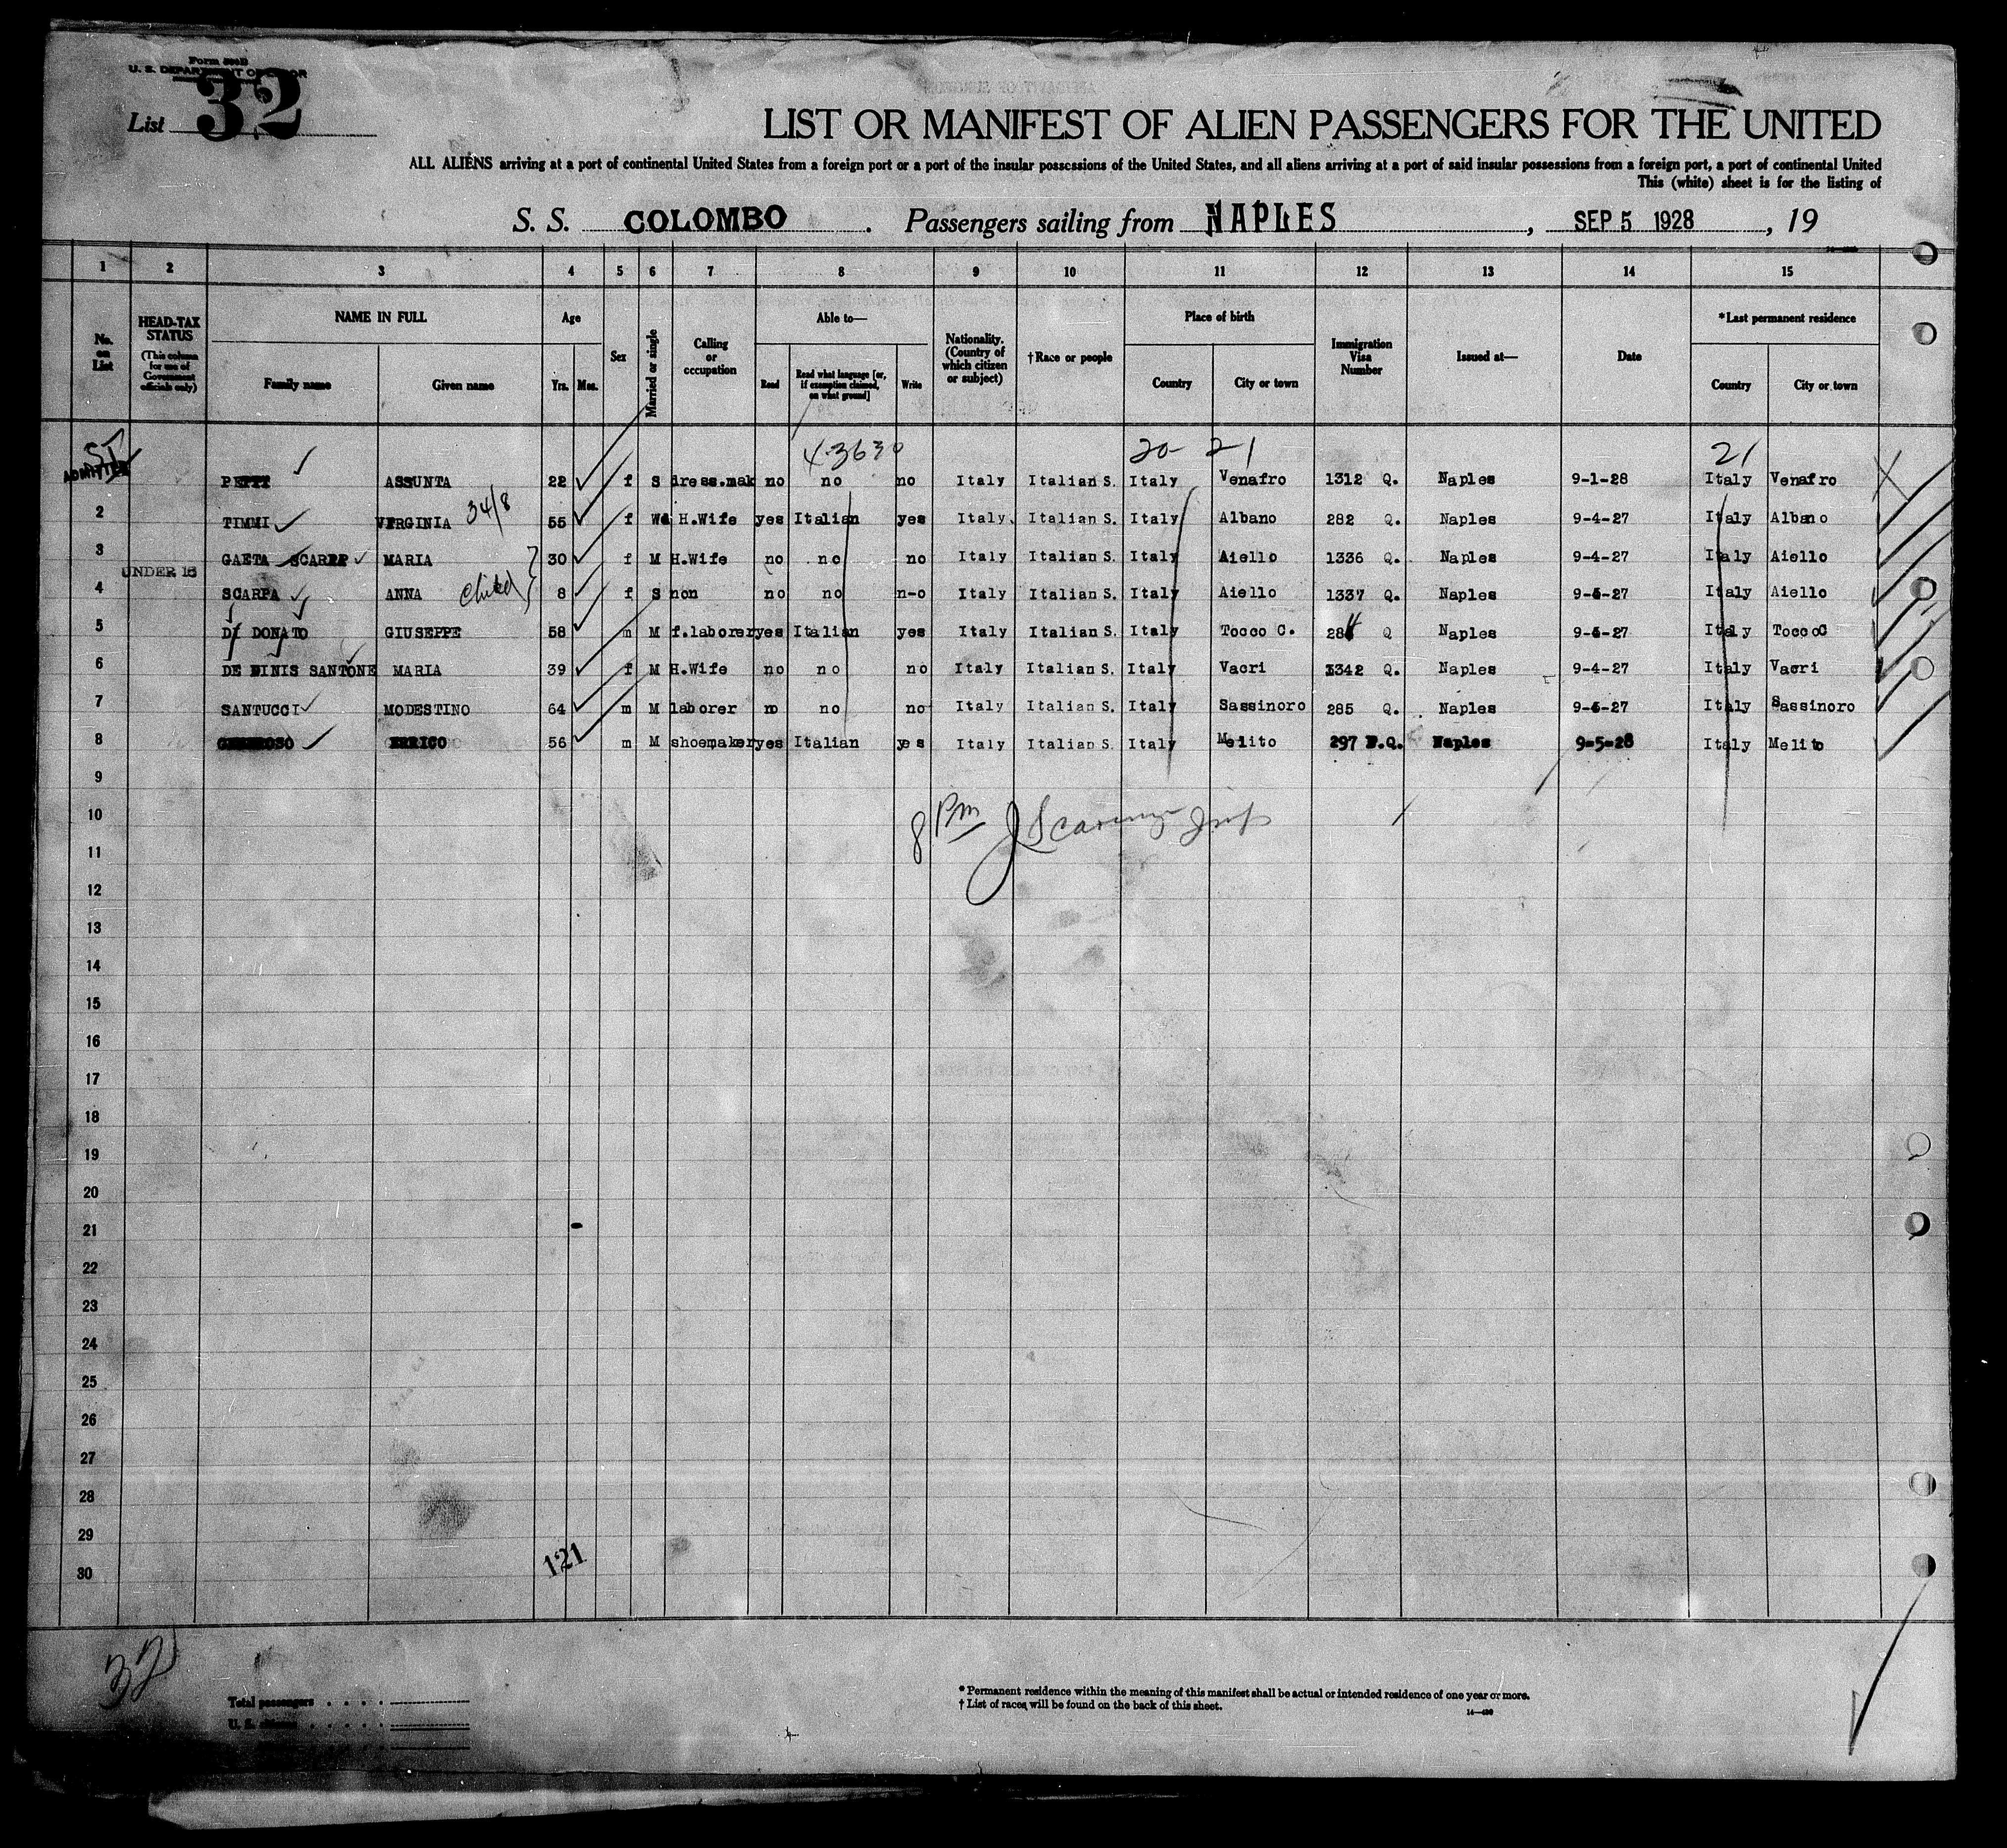 Form 500B
U. S. DEPARTMENT OF LABOR
List 32
LIST OR MANIFEST OF ALIEN PASSENGERS FOR THE UNITED
ALL ALIENS arriving at a port of continental United States from a foreign port or a port of the insular possessions of the United States, and all aliens arriving at a port of said insular possessions from a foreign port, a port of continental United
This (white) sheet is for the listing of
S. S. COLOMBO . Passengers sailing from NAPLES , SEP 5 1928 , 19
1 2 3 4 5 6 7 8 9 10 11 12 13 14 15
No. on List
HEAD-TAX STATUS (This column for use of Government officials only)
NAME IN FULL
Family name Given name
Age
Yrs. Mos.
Sex
Married or single
Calling or occupation
Able to—
Read
Read what language [or, if exemption claimed, on what ground]
Write
Nationality. (Country of which citizen or subject)
†Race or people
Place of birth
Country City or town
Immigration Visa Number
Issued at—
Date
*Last permanent residence
Country City or town
SI 43630 20- 21 21
ADMITTED PETTI ASSUNTA 22 f S dress.mak no no no Italy Italian S. Italy Venafro 1312 Q. Naples 9-1-28 Italy Venafro
2 TIMMI VIRGINIA 34/8 55 f Wd H.Wife yes Italian yes Italy. Italian S. Italy Albano 282 Q. Naples 9-4-27 Italy Albano
3 GAETA SCARPA MARIA 30 f M H.Wife no no no Italy Italian S. Italy Aiello 1336 Q. Naples 9-4-27 Italy Aiello
UNDER 16
4 SCARPA ANNA child 8 f S non no no n-o Italy Italian S. Italy Aiello 1337 Q. Naples 9-5-27 Italy Aiello
5 Di DONATO GIUSEPPE 58 m M f.laborer yes Italian yes Italy Italian S. Italy Tocco C. 284 Q Naples 9-5-27 Italy Tocco C
6 DE NINIS SANTONE MARIA 39 f M H.Wife no no no Italy Italian S. Italy Vacri 1342 Q. Naples 9-4-27 Italy Vacri
7 SANTUCCI MODESTINO 64 m M laborer no no no Italy Italian S. Italy Sassinoro 285 Q. Naples 9-5-27 Italy Sassinoro
8 ERRICO 56 m M shoemaker yes Italian yes Italy Italian S. Italy Melito 297 N.Q. Naples 9-5-28 Italy Melito
9
10
8 Pm
11
12
13
14
15
16
17
18
19
20
21
22
23
24
25
26
27
28
29
30
121
32
Total passengers . . . .
U. S. citizens . . . . .
* Permanent residence within the meaning of this manifest shall be actual or intended residence of one year or more.
† List of races will be found on the back of this sheet.